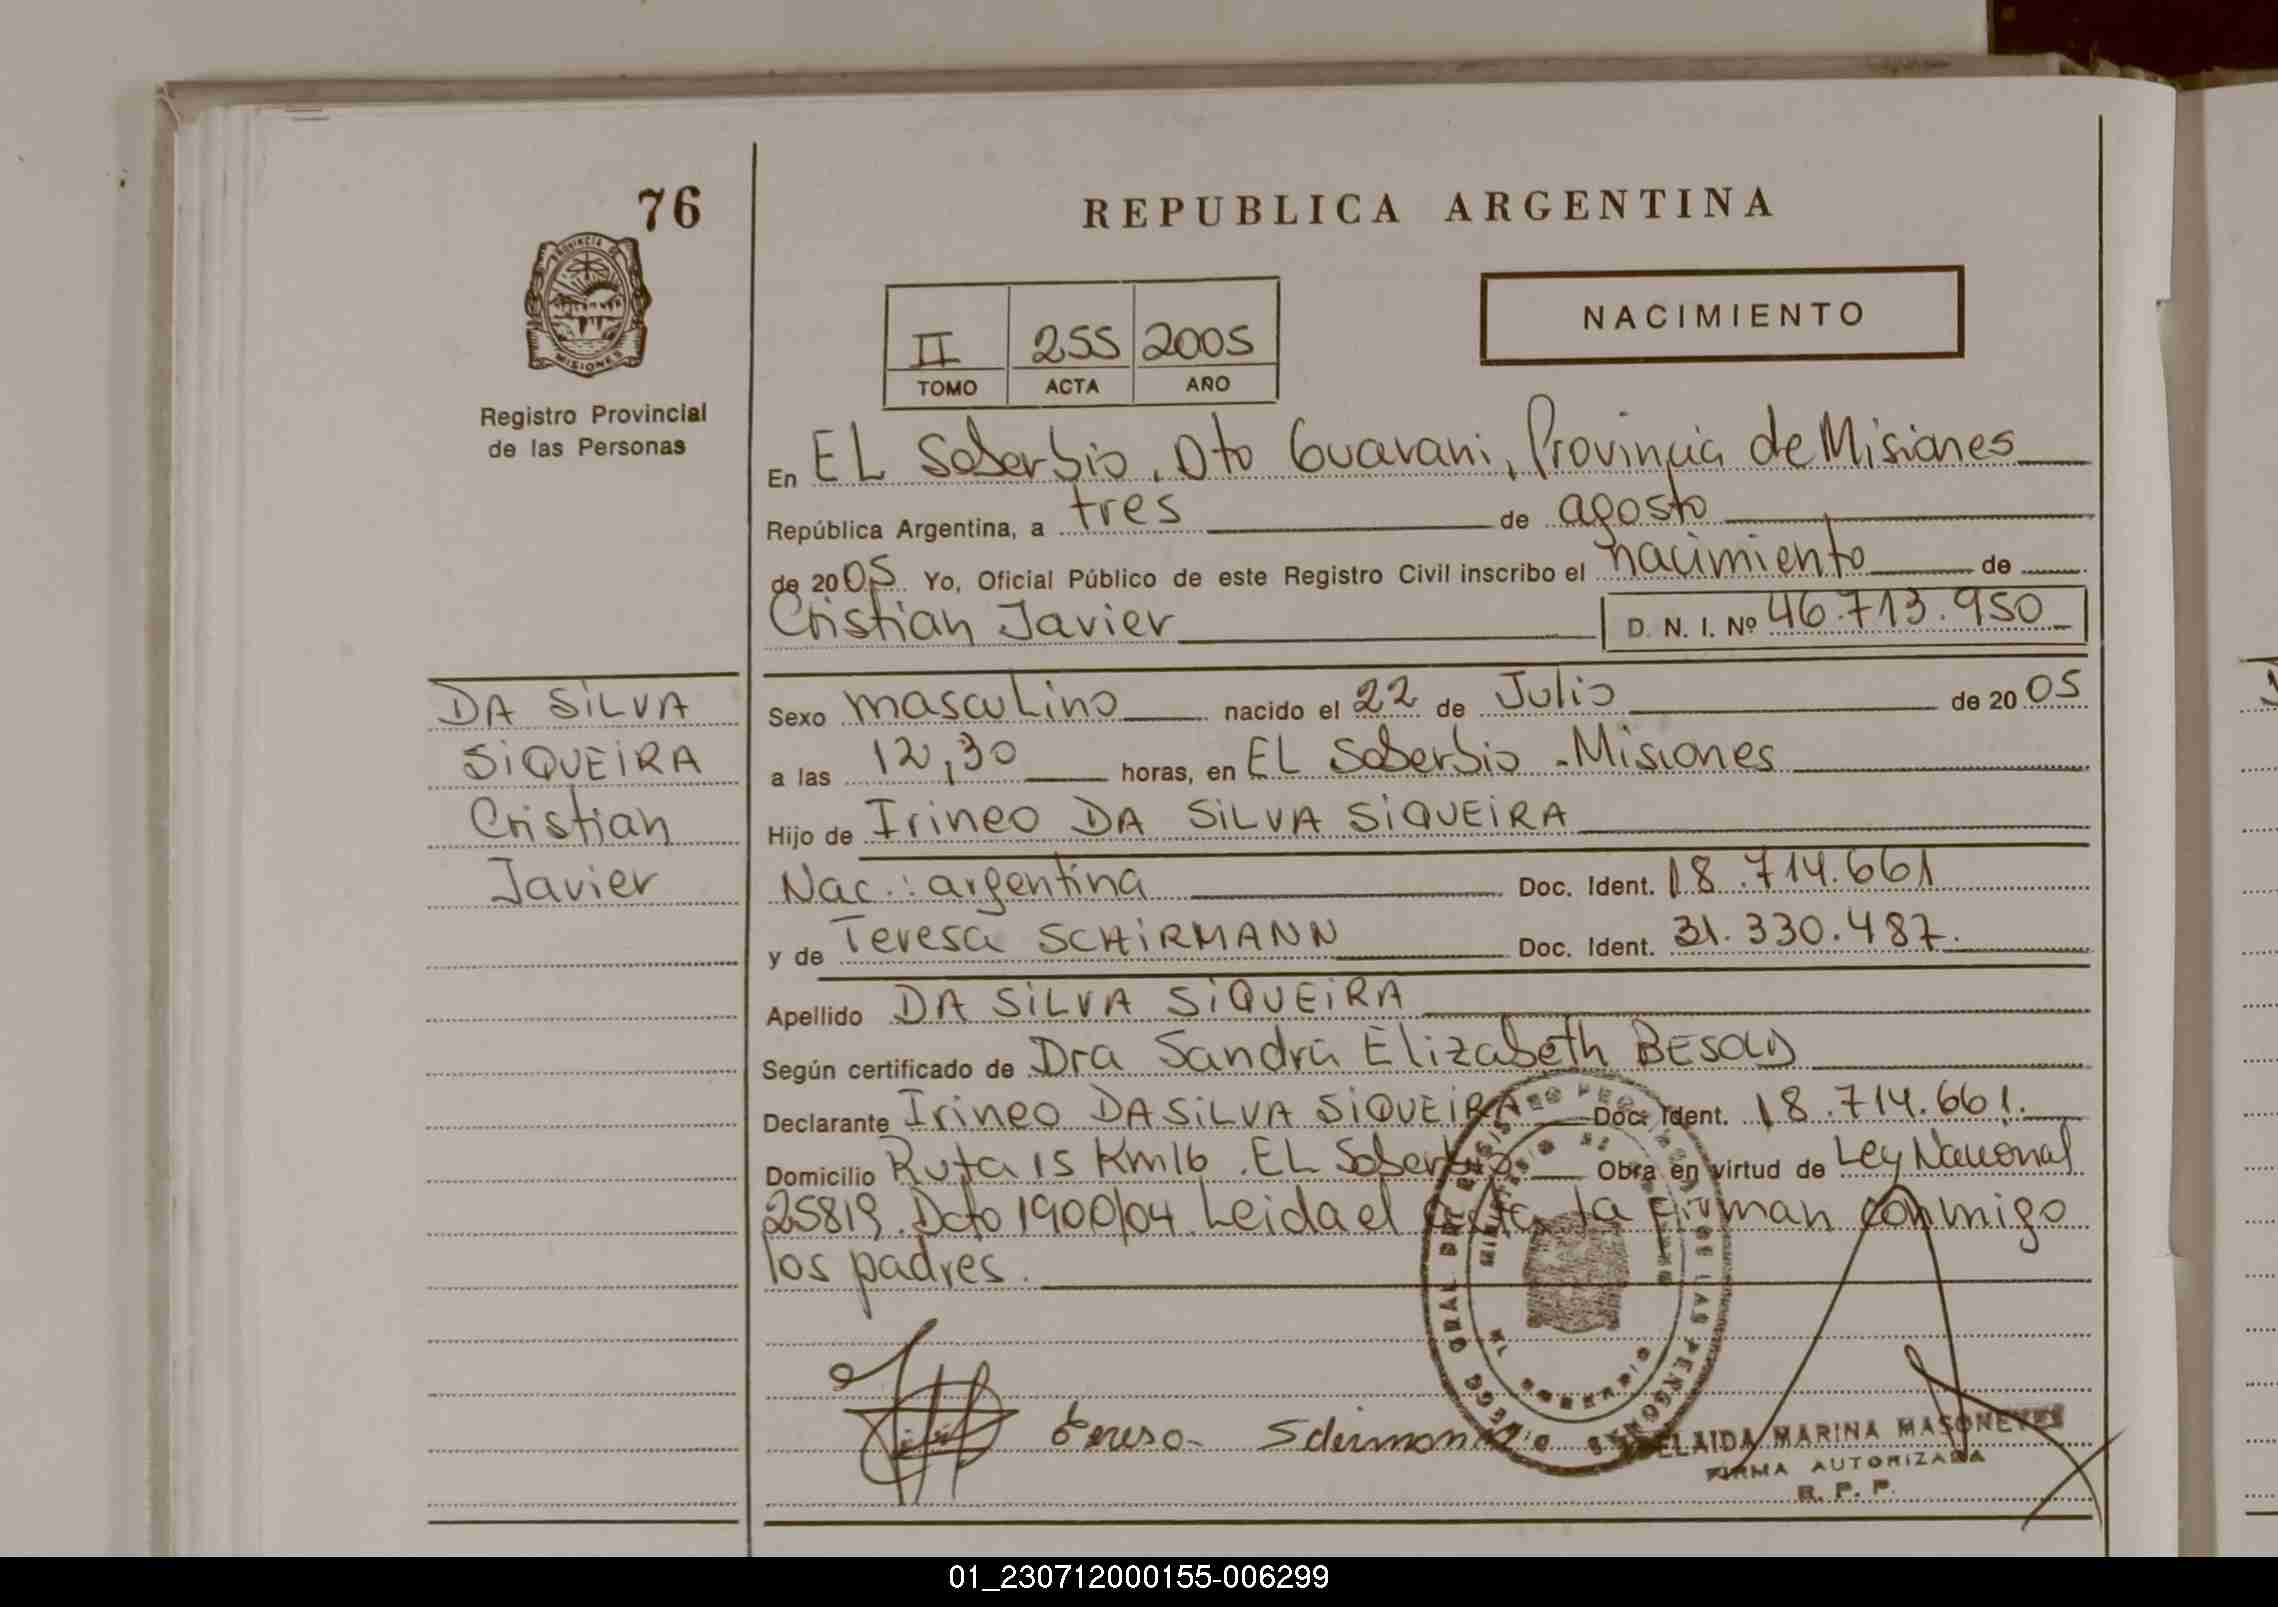 76
REPUBLICA ARGENTINA
PROVINCIA DE
MISIONES
Registro Provincial
de las Personas
NACIMIENTO
II 255 2005
TOMO ACTA AÑO
En EL Soberbio, Dto Guarani, Provincia de Misiones
República Argentina, a tres de agosto
de 2005 Yo, Oficial Público de este Registro Civil inscribo el nacimiento de
Cristian Javier D. N. I. Nº 46.713.950
DA SILVA
SIQUEIRA
Cristian
Javier
Sexo masculino nacido el 22 de Julio de 2005
a las 12,30 horas, en EL Soberbio - Misiones
Hijo de Irineo DA SILVA SIQUEIRA
Nac.: argentina Doc. Ident. 18.714.661
y de Teresa SCHIRMANN Doc. Ident. 31.330.487.
Apellido DA SILVA SIQUEIRA
Según certificado de Dra Sandra Elizabeth BESOLD
Declarante Irineo DA SILVA SIQUEIRA Doc. Ident. 18.714.661.
Domicilio Ruta 15 Km16. EL Soberbio Obra en virtud de Ley Nacional
25819. Dcto 1900/04. Leida el acta, la firman conmigo
los padres.
DE LAS PERSONAS
MARINA
FIRMA AUTORIZADA
R. P. P.
01_230712000155-006299